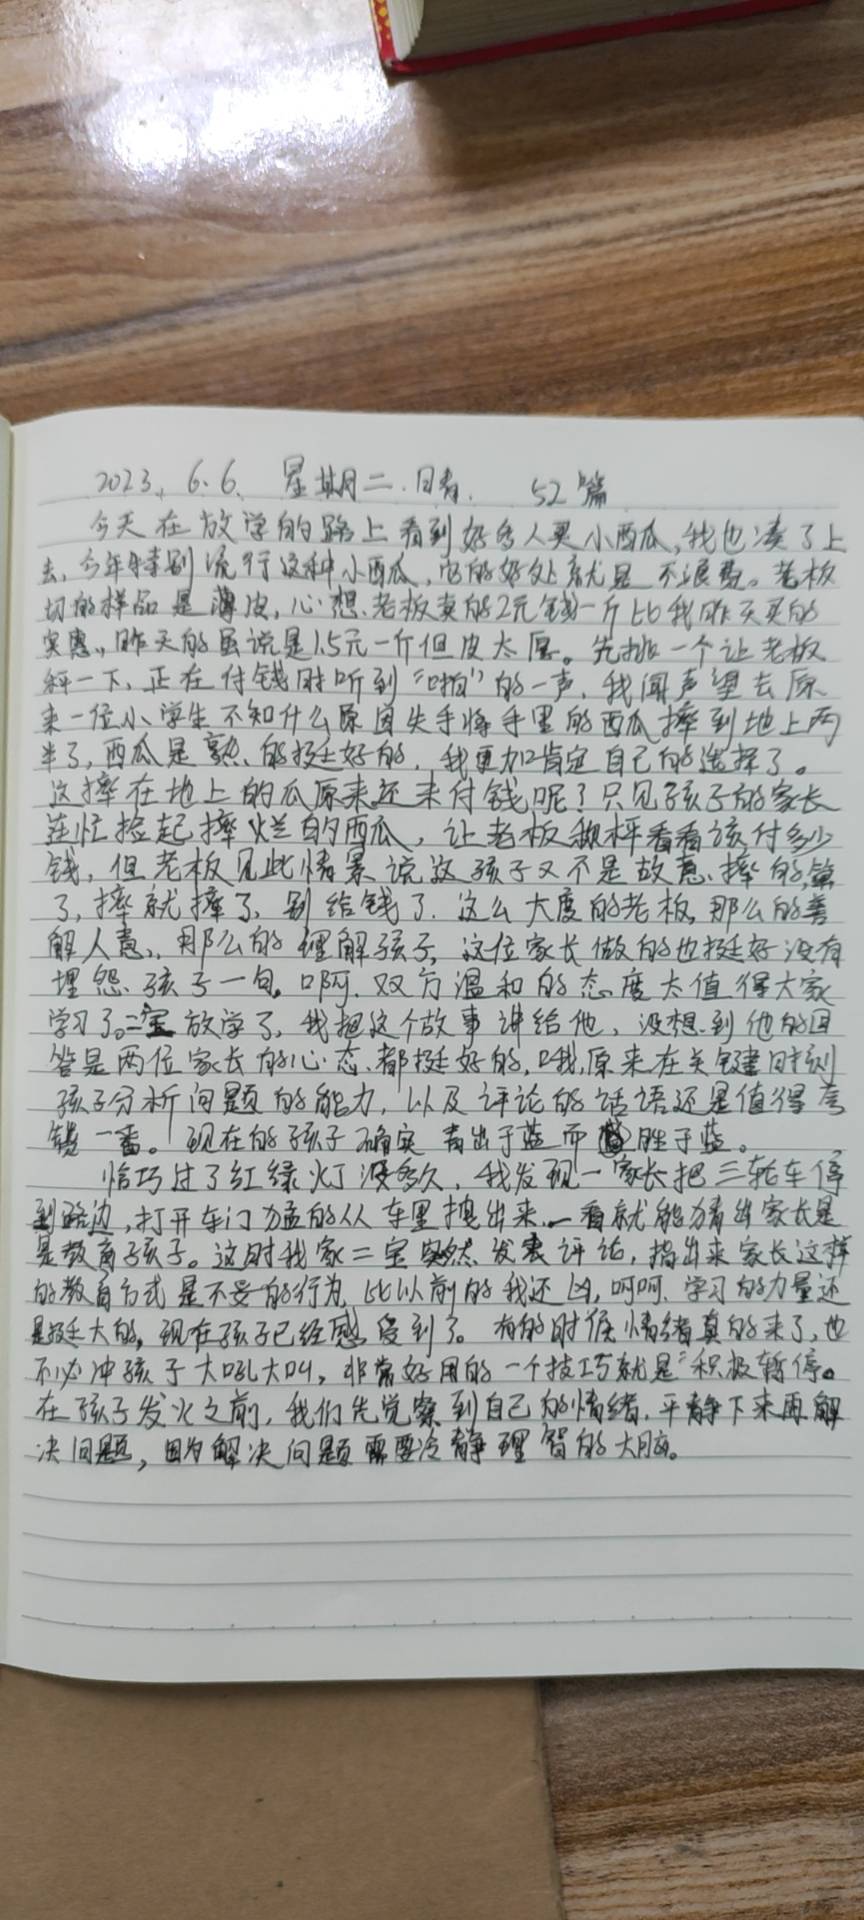 2023. 6.6. 星期二.晴. 52篇
今天在放学的路上看到好多人买小西瓜,我也凑了上
去,今年特别流行这种小西瓜,它的好处就是不浪费。老板
切的样品是薄皮,心想,老板卖的2元钱一斤比我昨天买的
实惠,昨天的虽说是1.5元一斤但皮太厚。先挑一个让老板
秤一下,正在付钱时听到“啪”的一声,我闻声望去原
来一位小学生不知什么原因失手将手里的西瓜摔到地上两
半了,西瓜是熟的挺好的,我更加肯定自己的选择了。
这摔在地上的瓜原来还未付钱呢?只见孩子的家长
连忙捡起摔烂的西瓜,让老板秤看看该付多少
钱,但老板见此情景说这孩子又不是故意摔的,算
了,摔就摔了,别给钱了.这么大度的老板,那么的善
解人意,那么的理解孩子,这位家长做的也挺好没有
埋怨孩子一句。啊,双方温和的态度太值得大家
学习了。二宝放学了,我把这个故事讲给他,没想到他的回
答是两位家长的心态都挺好的,哦,原来在关键时刻
孩子分析问题的能力,以及评论的话语还是值得夸
赞一番。现在的孩子确实青出于蓝而胜于蓝。
恰巧过了红绿灯没多久,我发现一家长把三轮车停
到路边,打开车门猛的从车里拽出来,一看就能猜出家长是
是教育孩子。这时我家二宝突然发表评论,指出来家长这样
的教育方式是不妥的行为,比以前的我还凶,呵呵,学习的力量还
是挺大的,现在孩子已经感受到了。有的时候情绪真的来了,也
不必冲孩子大吼大叫,非常好用的一个技巧就是“积极暂停。
在孩子发火之前,我们先觉察到自己的情绪,平静下来再解
决问题,因为解决问题需要冷静理智的大脑。